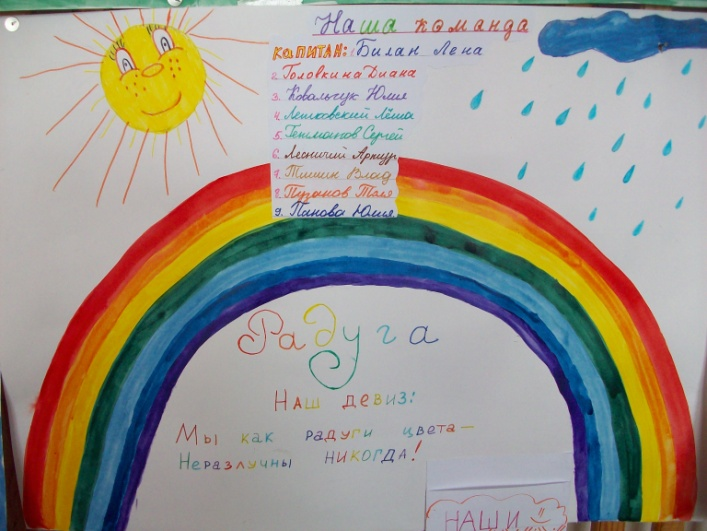 Наша команда
КАПИТАН: Билан Лена
2. Головкина Диана
3. Ковальчук Юлия
4. Лешковский Лёша
5. Гензманов Сергей
6. Лесничий Артур
7. Тишин Влад
8. Пузанов Толя
9. Панова Юлия
Радуга
Наш девиз:
Мы как радуги цвета-
Неразлучны никогда!
НАШИ